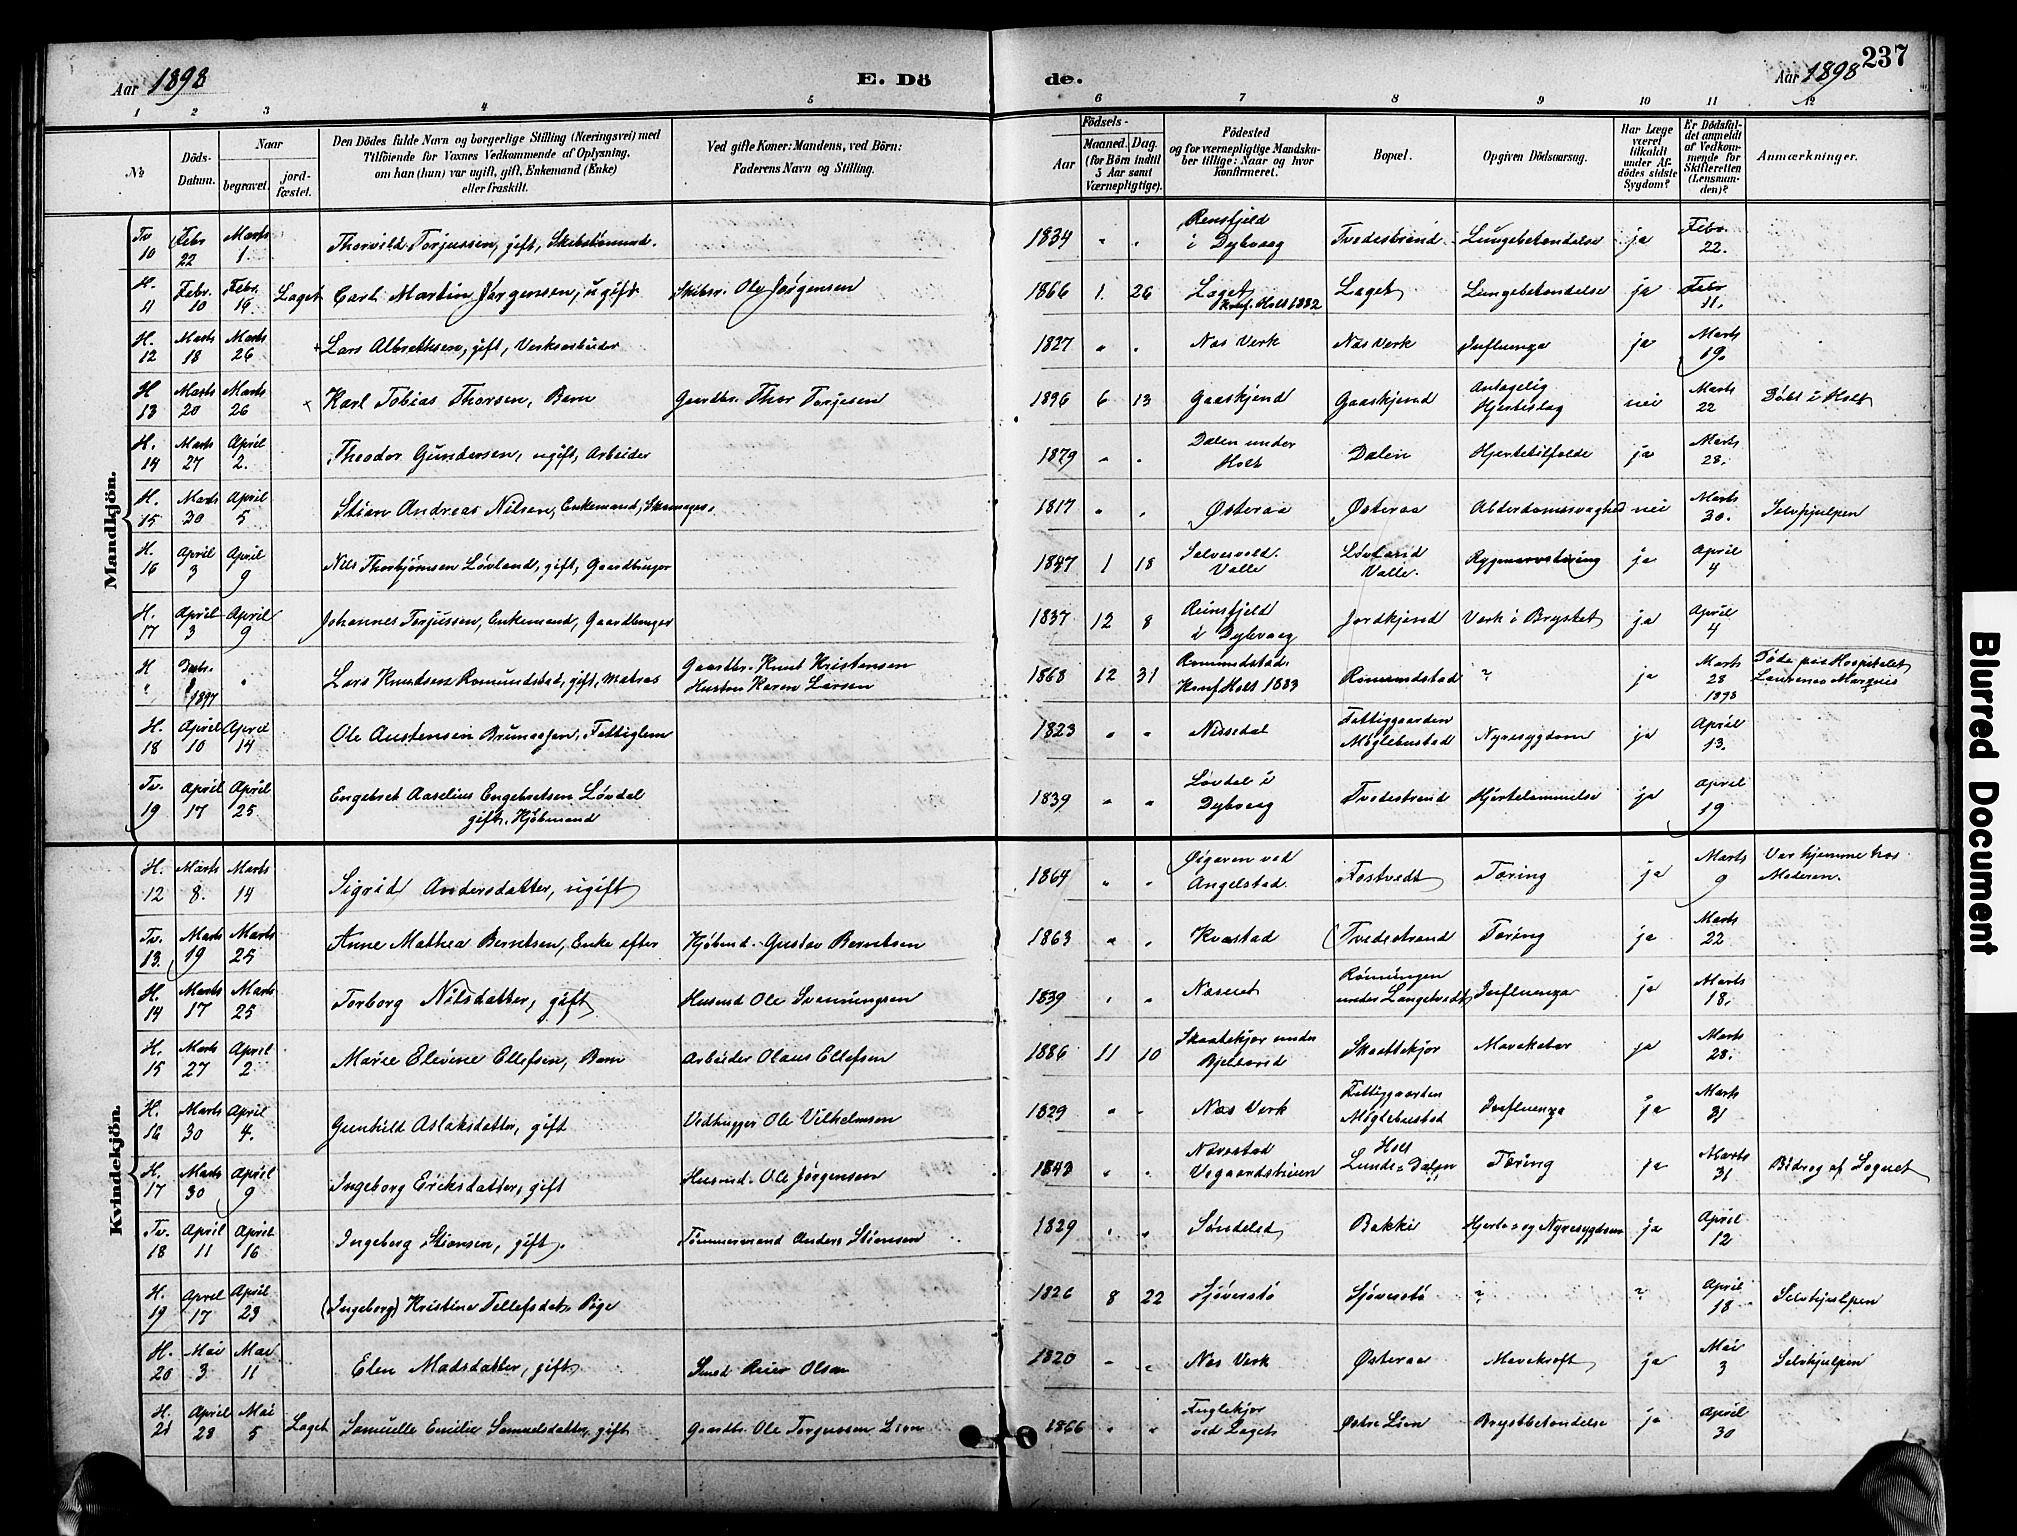 237
Aar 1898
E. Dö
de.
Aar 1898
1 2 3 4 5 6 7 8 9 10 11 12
№
Döds-
Datum.
Naar
begravet.
jord-
fæstet.
Den Dödes fulde Navn og borgerlige Stilling (Næringsvei) med
Tilföiende for Voxnes Vedkommende af Oplysning,
om han (hun) var ugift, gift, Enkemand (Enke)
eller fraskilt.
Ved gifte Koner: Mandens, ved Börn:
Faderens Navn og Stilling.
Födsels-
Aar
Maaned. Dag.
(for Börn indtil
5 Aar samt
Værnepligtige).
Födested
og for værnepligtige Mandska-
ber tillige: Naar og hvor
konfirmeret.
Bopæl.
Opgiven Dödsaarsag.
Har Læge
været
tilkaldt
under Af-
dödes sidste
Sygdom?
Er Dödsfal-
det anmeldt
af Vedkom-
mende for
Skifteretten
(Lensman-
den)?
Anmærkninger.
Mandkjön.
Tv 10 Febr 22 Marts 1. Thorvild Torjussen, gift, Skibstömmd. 1834 " " Rensfjeld i Dybvaag Tvedestrand Lungebetændelse ja Febr. 22.
H. 11 Febr. 10 Febr. 19. Laget Carl Martin Jørgensen, ugift Skibsr. Ole Jørgensen 1866 1. 26 Laget Konf. Holt 1882 Laget Lungebetændelse ja Febr 11.
H. 12 Marts 18 Marts 26 Lars Albrettsen, gift, Verksarbeider 1827 " " Næs Verk Næs Verk Influenza ja Marts 19.
H 13 Marts 20 Marts 26 Karl Tobias Thorsen, Barn Gaardbr. Thor Torjesen 1896 6 13 Gaaskjend Gaaskjend Antagelig Hjerteslag nei Marts 22 Döbt i Holt
H. 14 Marts 27 April 2. Theodor Gundersen, ugift, Arbeider 1879 " " Dalen under Holt Dalen Hjertetilfælde ja Marts 28.
H. 15 Marts 30 April 5 Stian Andreas Nilsen, Enkemand, Skomager. 1817 " " Østeraa Østeraa Alderdomssvaghed nei Marts 30. Selvhjulpen
H. 16 April 3 April 9 Nils Thorbjørnsen Løvland, gift, Gaardbruger 1847 1 18 Selvesvold. Valle Løvland Valle. Rygmarvstæring ja April 4
H. 17 April 3 April 9 Johannes Torjussen, Enkemand, Gaardbruger 1837 12 8 Reinsfjeld i Dybvaag Jordkjend Verk i Brystet ja April 4
H " 1897 " Lars Knudsen Romundstad, gift, Matros Gaardbr. Knut Kristensen Hustru Karen Larsen 1868 12 31 Romundstad. Konf Holt 1883 Romundstad ? ja Marts 28 1898 Döde paa Hospitalet Laurenco Marquis
H. 18 April 10 April 14 Ole Austensen Brunaasen, Fattiglem 1823 " " Nissedal Fattiggaarden Møglebustad Nyresygdom ja April 13.
Tv. 19 April 17 April 25. Engebret Aaselius Engebretsen Løvdal gift, Kjöbmand 1839 " " Løvdal i Dybvaag Tvedestrand Hjertelammelse ja April 19
Kvindekjön.
H. 12 Marts 8. Marts 14 Sigrid Andersdatter, ugift 1864 " " ved Angelstad. Fostvedt Tæring ja Marts 9 Var hjemme hos Moderen.
Tv. 13. Marts 19 Marts 25 Anne Mathea Berntsen, Enke efter Kjöbmd. Gustav Berntsen 1863 " " Kvastad Tvedestrand Tæring ja Marts 22
H. 14 Marts 17 Marts 25 Torborg Nilsdatter, gift Husmd Ole Svenningsen 1839 " " Næseset under Langetvedt Influenza ja Marts 18.
H. 15 Marts 27 April 2 Marie Elevine Ellefsen, Barn Arbeider Olaus Ellefsen 1886 11 10 Skaatekjør under Bjelland Skaatekjør Mavekatar ja Marts 28.
H. 16 Marts 30 April 4. Gunhild Aslaksdatter, gift Vedhugger Ole Vilhelmsen 1829 " " Næs Verk Fattiggaarden Møglebustad Influenza ja Marts 31
H. 17 Marts 30 April 9 Ingeborg Eriksdatter, gift Husmd. Ole Jørgensen 1843 " " Nævestad Vegaardsheien Holt Lunde-Dalen Tæring ja Marts 31 Bidrag af Sognet
Tv. 18 April 11 April 16 Ingeborg Stiansen, gift. Tømmermand Anders Stiansen 1829 " " Søndeled Bakke Hjerte- og Nyresygdom ja April 12
H. 19 April 17 April 23 (Ingeborg) Kristine Tellefsdatr. Pige 1826 8 22 Sjöverstö Sjöverstö ? ? April 18 Selvhjulpen
H. 20 Mai 3 Mai 11 Elen Madsdatter, gift Smed Reier Olsen 1820 " " Næs Verk Østeraa Mavekræft ja Mai 3 Selvhjulpen
H. 21 April 28 Mai 5 Laget Samuelle Emilie Samuelsdatter, gift Gaardbr. Ole Torjussen Lien 1866 " " Fuglekjær ved Laget Østre Lien Brystbetændelse ja April 30
Blurred Document